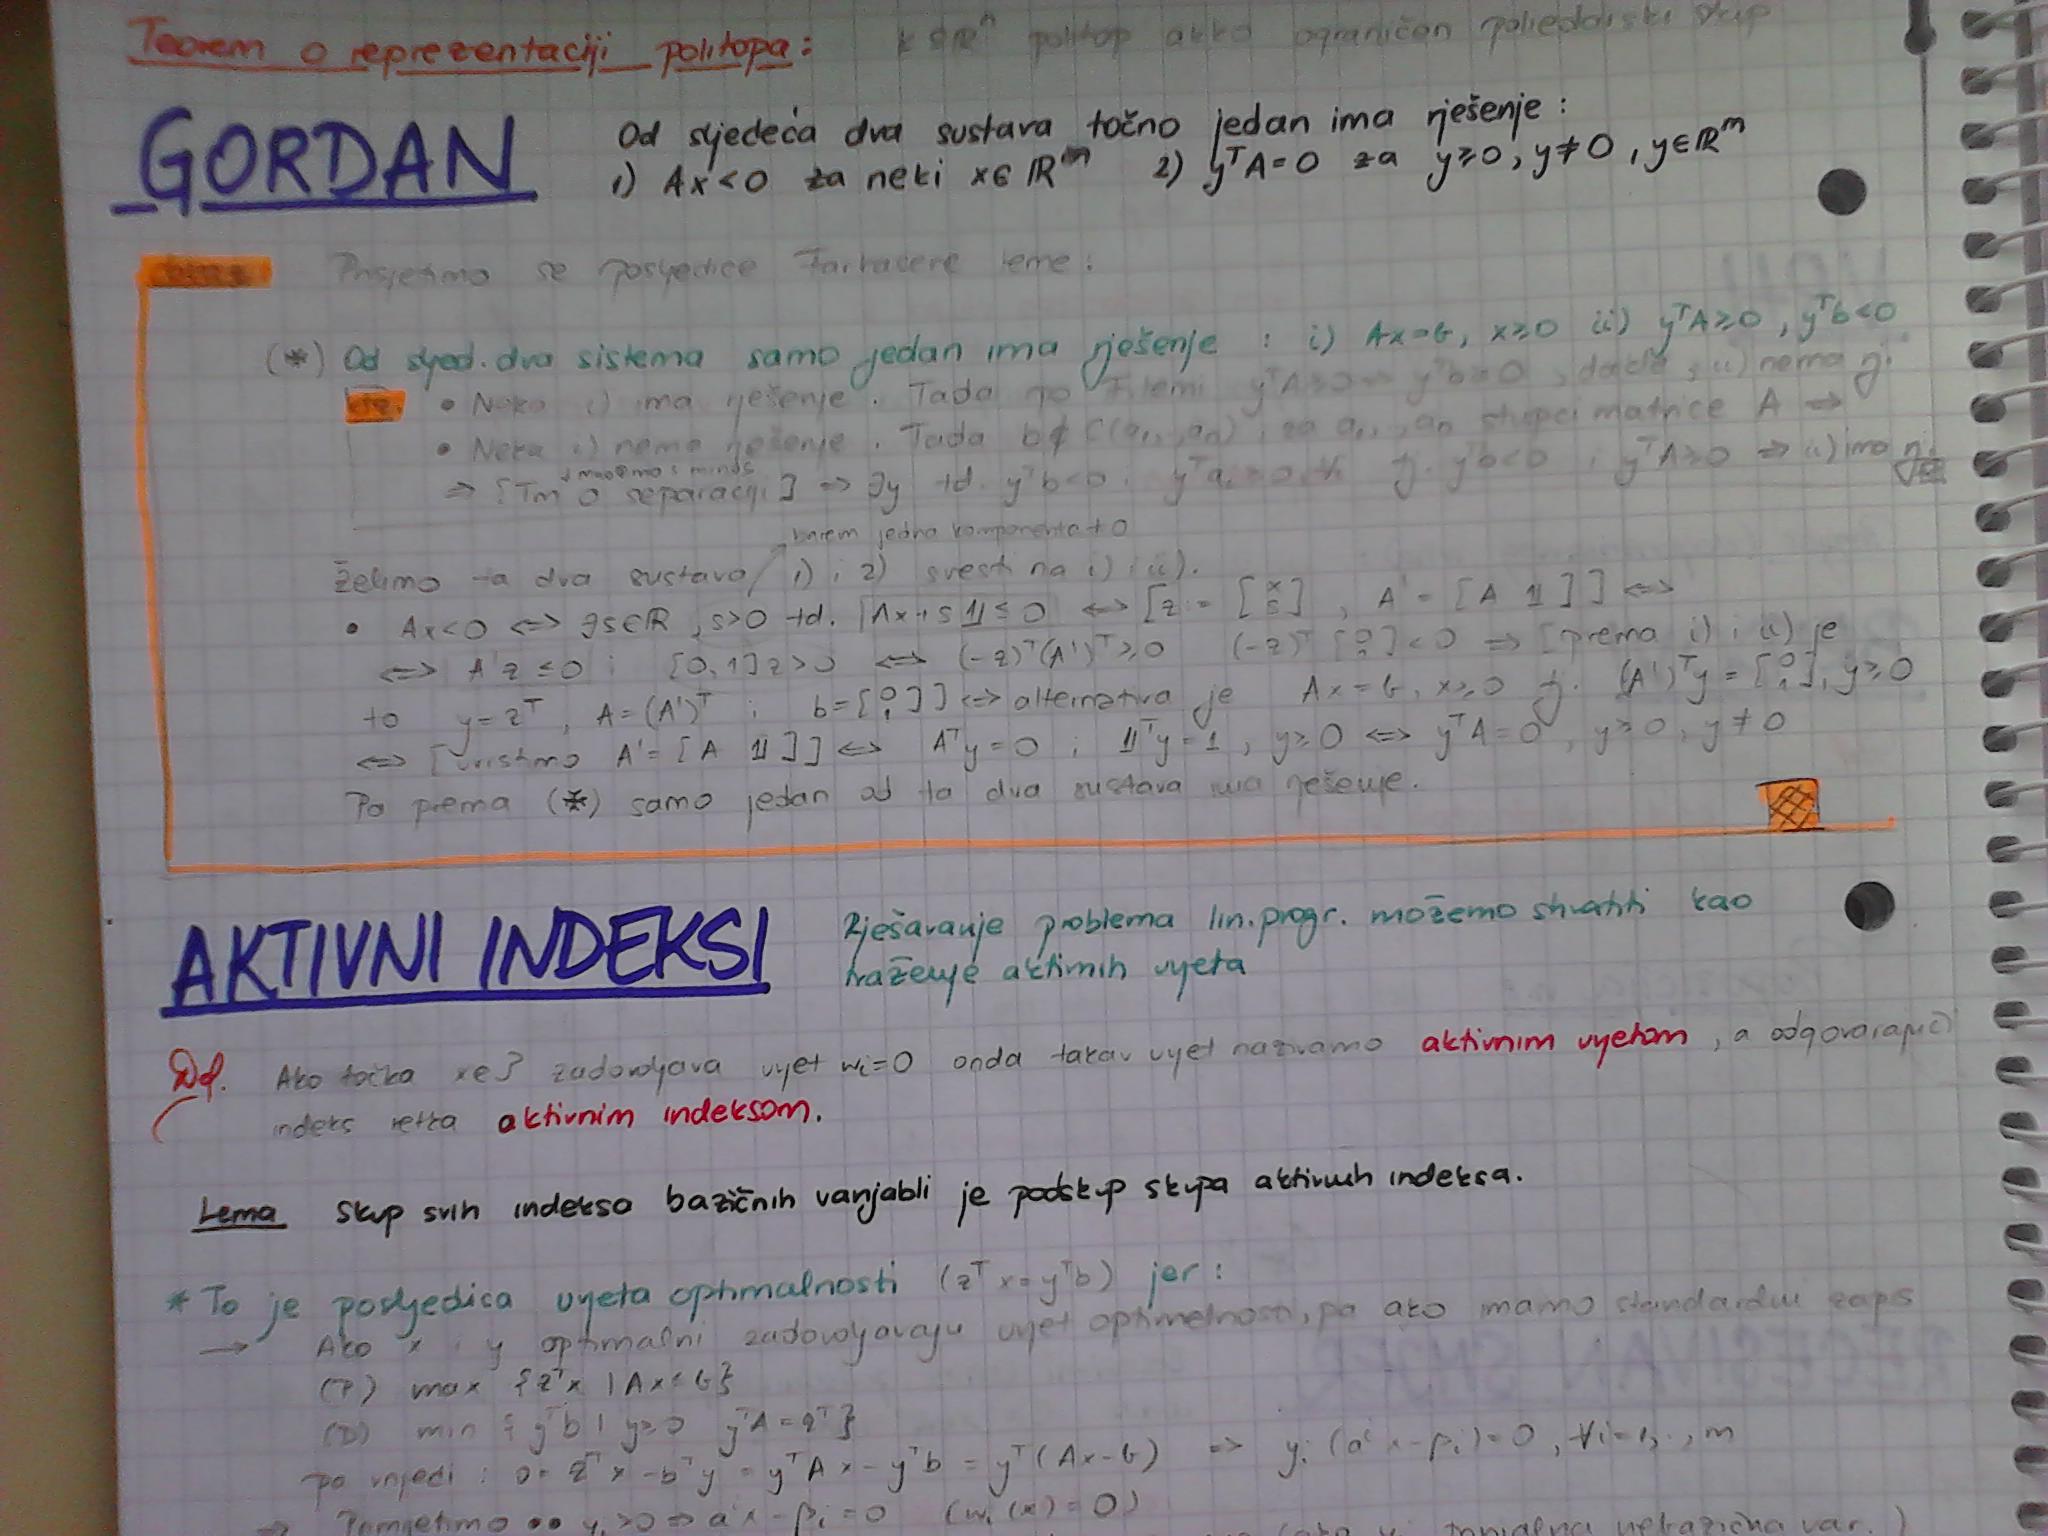 Teorem o reprezentaciji politopa: K ⊆ ℝⁿ politop akko ograničen poliedarski skup
GORDAN
Od sljedeća dva sustava točno jedan ima rješenje:
1) Ax<0 za neki x∈ℝᵐ 2) yᵀA=0 za y≥0, y≠0, y∈ℝᵐ
Prisjetimo se posljedice Farkaseve leme:
(*) Od sljed. dva sistema samo jedan ima rješenje: i) Ax=b, x≥0 ii) yᵀA≥0, yᵀb<0
• Neka i) ima rješenje. Tada po F.lemi yᵀA≥0 ⇒ yᵀb≥0, dakle, ii) nema rj.
• Neka i) nema rješenje. Tada b∉C(a₁,..,aₙ), za a₁,..,aₙ stupci matrice A ⇒
možemo s minus
⇒ [Tm o separaciji] ⇒ ∃y td. yᵀb<0 i yᵀaᵢ≥0 ∀i tj. yᵀb<0 i yᵀA≥0 ⇒ ii) ima rj.
barem jedna komponenta ≠0
Želimo ta dva sustava 1) i 2) svesti na i) i ii).
• Ax<0 ⇔ ∃s∈ℝ, s>0 td. Ax+s𝟙≤0 ⇔ [z:=[x s], A'=[A 𝟙]] ⇔
⇔ A'z≤0 i [0,1]z>0 ⇔ (-z)ᵀ(A')ᵀ≥0 (-z)ᵀ[0 1]<0 ⇒ [prema i) i ii) je
to y=zᵀ, A=(A')ᵀ i b=[0 1]] ⇔ alternativa je Ax=b, x≥0 tj. (A')ᵀy=[0 1], y≥0
⇔ [uvrstimo A'=[A 𝟙]] ⇔ Aᵀy=0 i 𝟙ᵀy=1, y≥0 ⇔ yᵀA=0, y≥0, y≠0
Pa prema (*) samo jedan od ta dva sustava ima rješenje.
AKTIVNI INDEKSI
Rješavanje problema lin.progr. možemo shvatiti kao
traženje aktivnih uvjeta
Df. Ako točka x∈F zadovoljava uvjet wᵢ=0 onda takav uvjet nazivamo aktivnim uvjetom, a odgovarajući
indeks retka aktivnim indeksom.
Lema Skup svih indeksa bazičnih varijabli je podskup skupa aktivnih indeksa.
* To je posljedica uvjeta optimalnosti (zᵀx=yᵀb) jer:
→ Ako x i y optimalni zadovoljavaju uvjet optimalnosti, pa ako imamo standardni zapis
(P) max {zᵀx | Ax≤b}
(D) min {yᵀb | y≥0 yᵀA=zᵀ}
pa vrijedi: 0=zᵀx-bᵀy=yᵀAx-yᵀb=yᵀ(Ax-b) ⇒ yᵢ(aⁱx-βᵢ)=0, ∀i=1,..,m
⇒ Primijetimo •• yᵢ>0 ⇒ aⁱx-βᵢ=0 (wᵢ(x)=0)
nebazična var.)